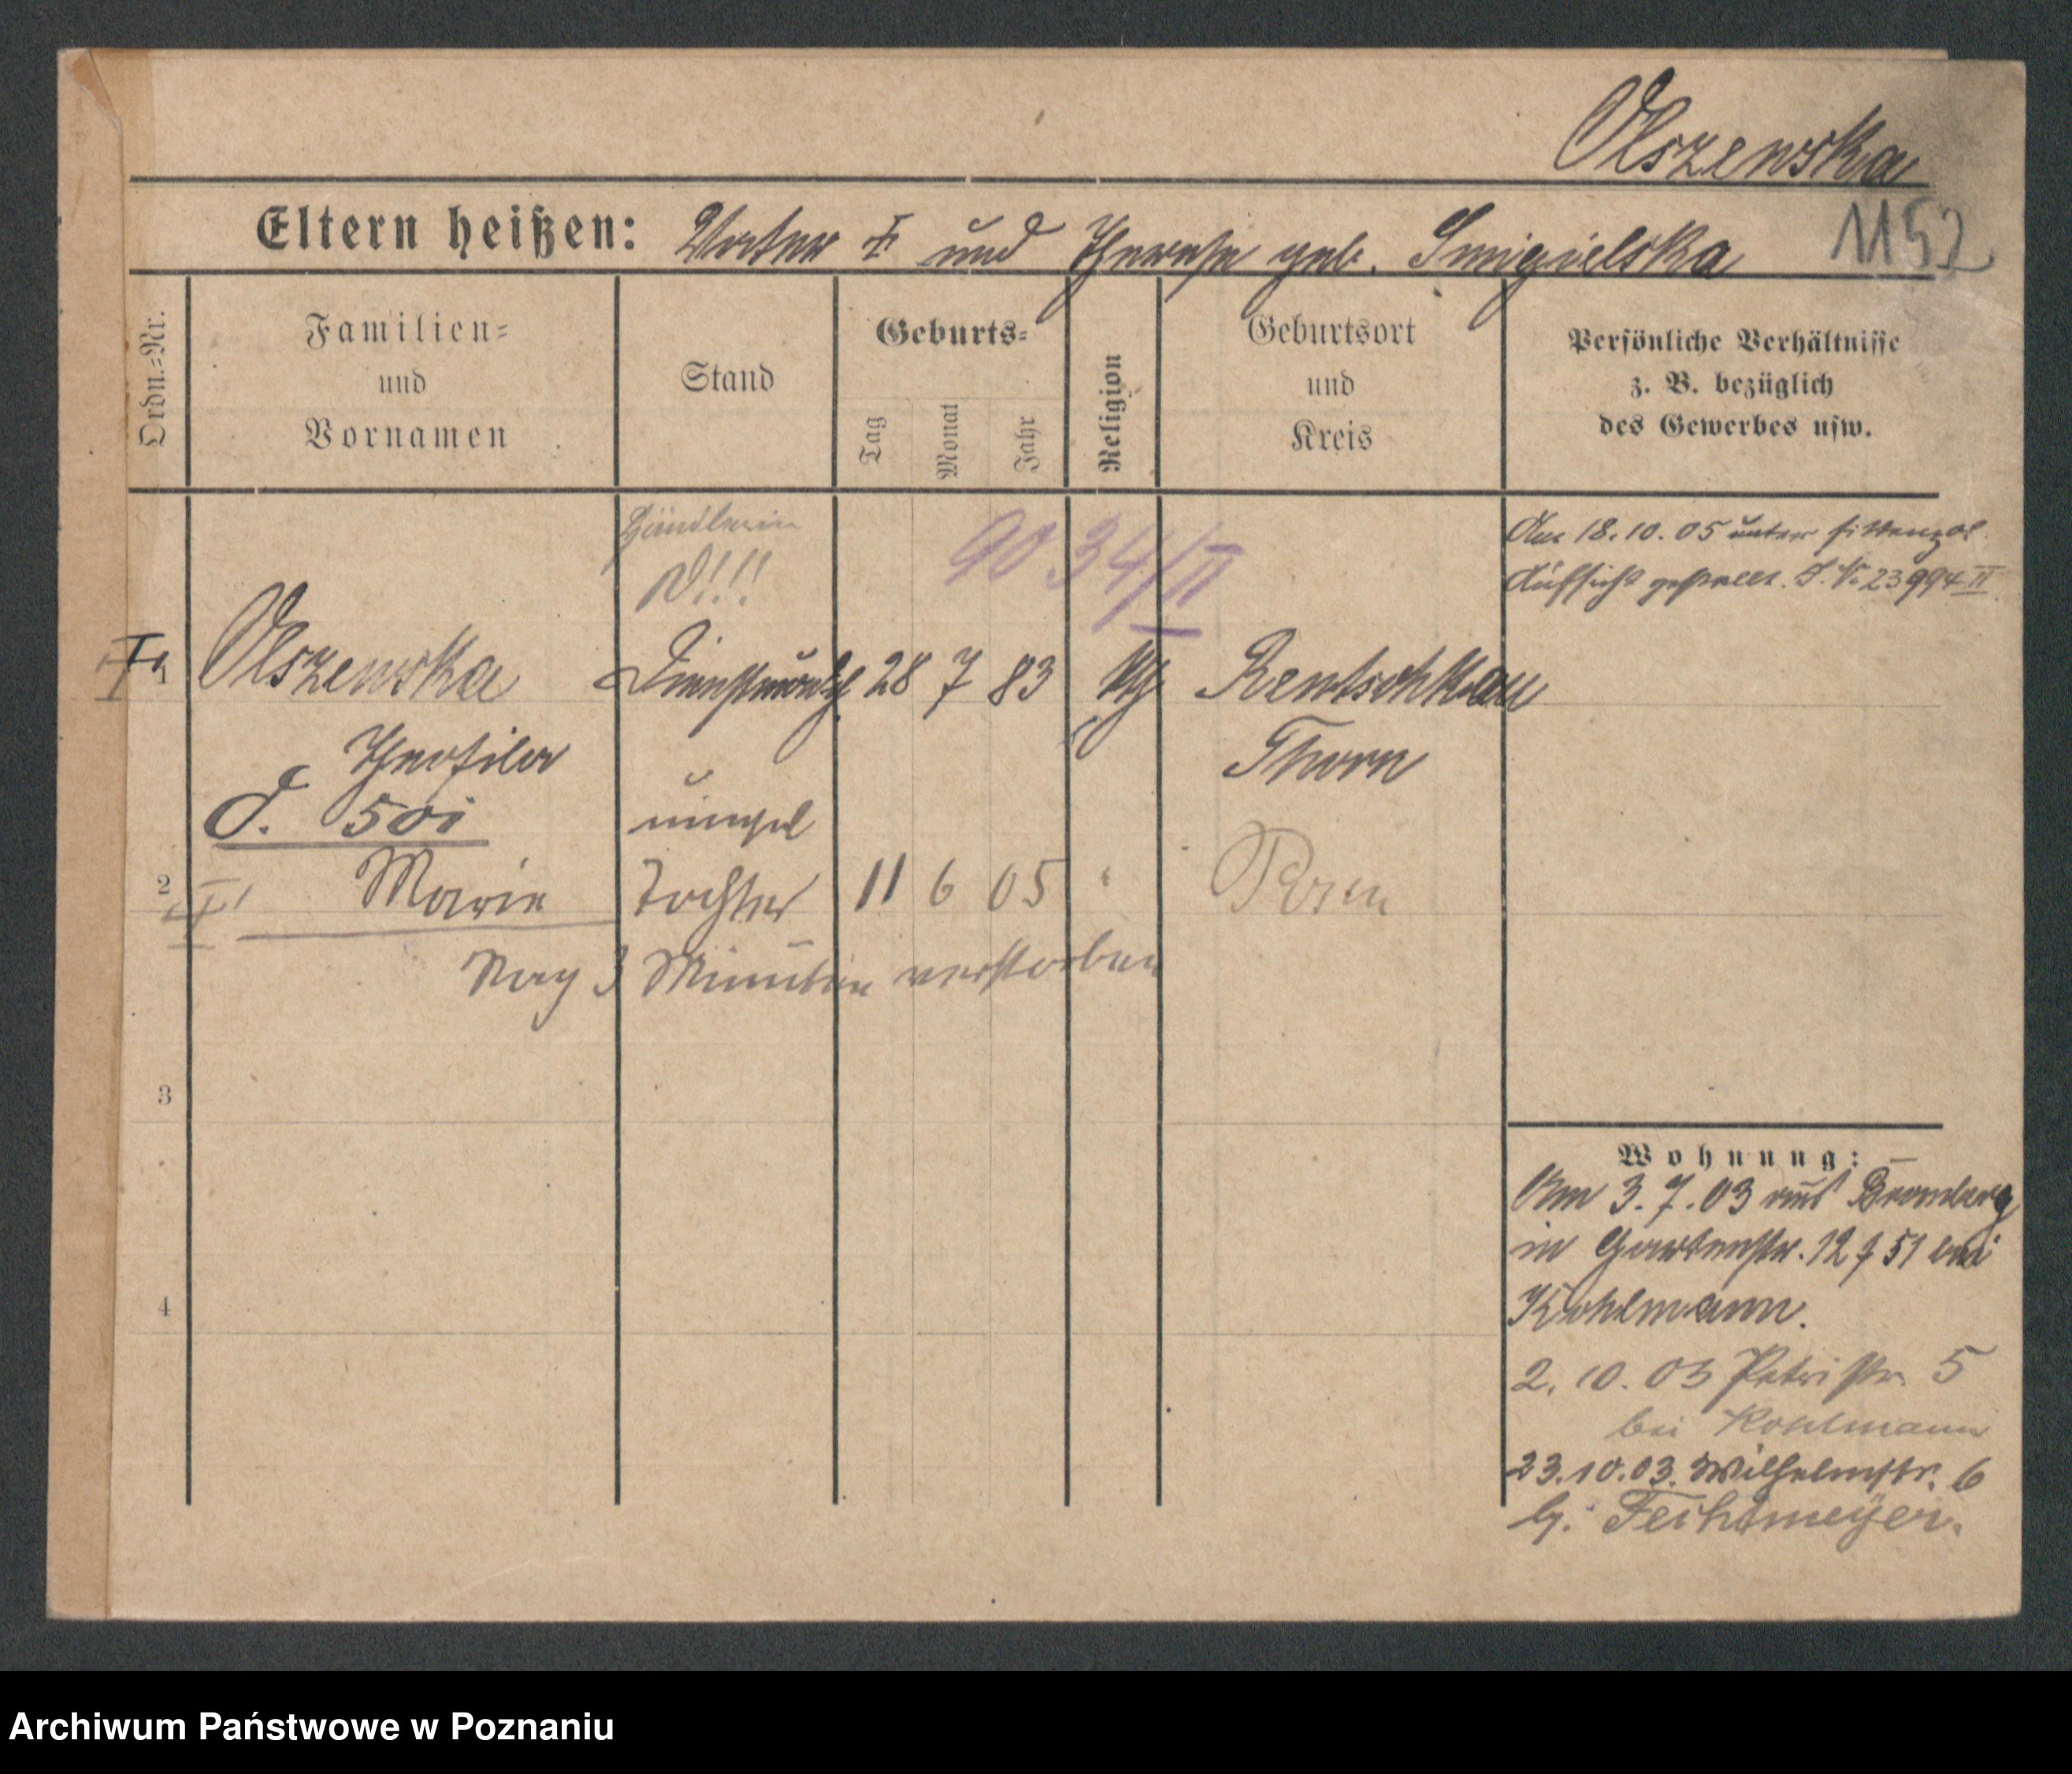 Olszewska
1152
Eltern heißen: Vater † und Therese geb. Smigielska
Ordn.=Nr.
Familien=
und
Vornamen
Stand
Geburts=
Tag
Monat
Jahr
Religion
Geburtsort
und
Kreis
Persönliche Verhältnisse
z. B. bezüglich
des Gewerbes usw.
Händlerin
9034/II
Am 18.10.05 unter sittenpol.
Aufsicht gestellt. J. № 23994 II
Olszewska
28 7 83 kth
Rentschkau
Theofila
Thorn
501
unehel
2 Marie Tochter 11 6 05 " Posen
Nach 3 Minuten verstorben
3
4
Wohnung:
Am 3.7.03 aus Bromberg
in Gartenstr. 12 f 51 bei
Kohlmann.
2.10.03 Petristr. 5
bei Kohlmann
23.10.03. Wilhelmstr. 6
b. Feichtmeyer.
Archiwum Państwowe w Poznaniu